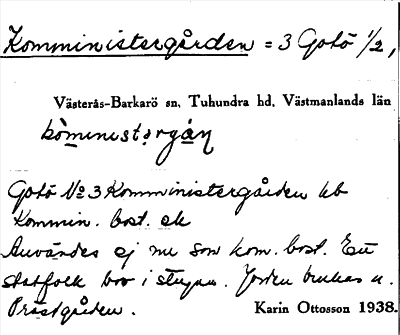 Komministergården = 3 Gotö 1/2,
Västerås-Barkarö sn, Tuhundra hd, Västmanlands län
Gotö No 3 Komministergården hb
Kommin. bost. ek
Användes ej nu som kom. bost. Ett
statfolk bor i stugan. Jorden brukas u.
Prästgården.
Karin Ottosson 1938.